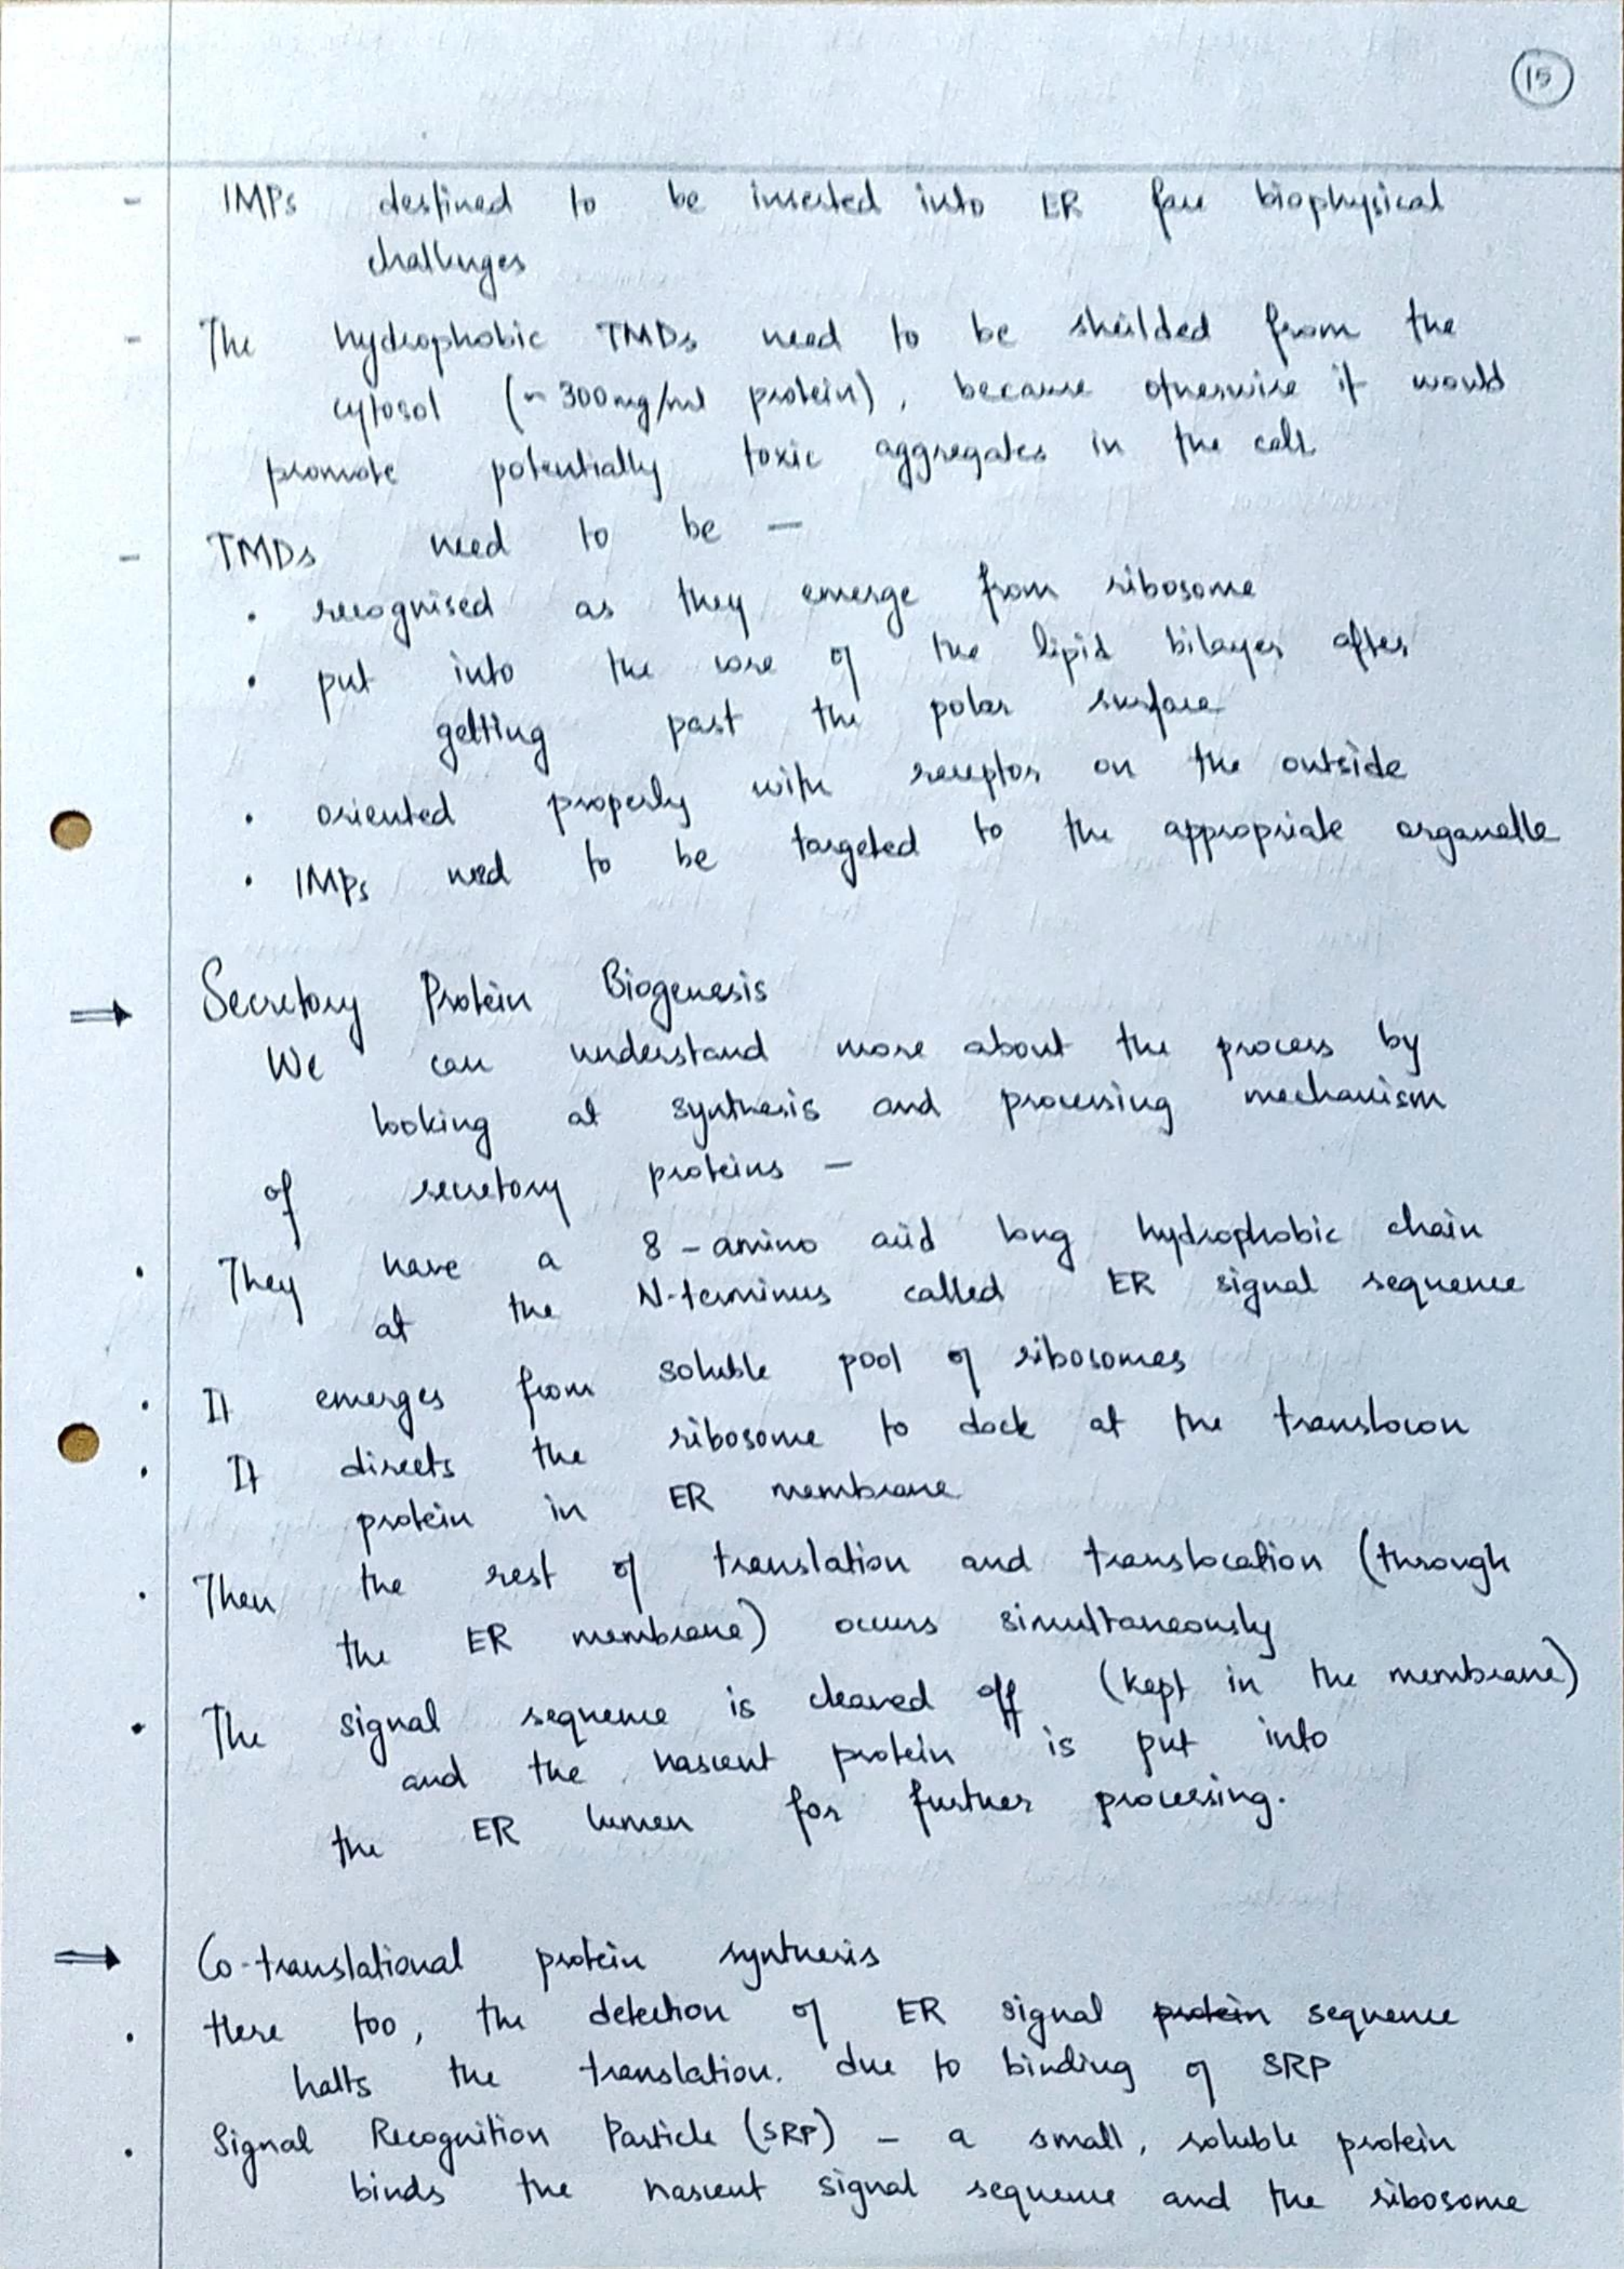 15
- IMPs destined to be inserted into ER face biophysical
challenges
- The hydrophobic TMDs need to be sheilded from the
cytosol (~300mg/ml protein), because otherwise it would
promote potentially toxic aggregates in the cell
- TMDs need to be —
• recognised as they emerge from ribosome
• put into the core of the lipid bilayer after
getting past the polar surface
• oriented properly with receptor on the outside
• IMPs need to be targeted to the appropriate organelle
⇒ Secretory Protein Biogenesis
We can understand more about the process by
looking at synthesis and processing mechanism
of secretory proteins —
• They have a 8-amino acid long hydrophobic chain
at the N-terminus called ER signal sequence
• It emerges from soluble pool of ribosomes
• It directs the ribosome to dock at the translocon
protein in ER membrane
• Then the rest of translation and translocation (through
the ER membrane) occurs simultaneously
• The signal sequence is cleaved off (kept in the membrane)
and the nascent protein is put into
the ER lumen for further processing.
⇒ Co-translational protein synthesis
• Here too, the detection of ER signal protein sequence
halts the translation. due to binding of SRP
• Signal Recognition Particle (SRP) - a small, soluble protein
binds the nascent signal sequence and the ribosome